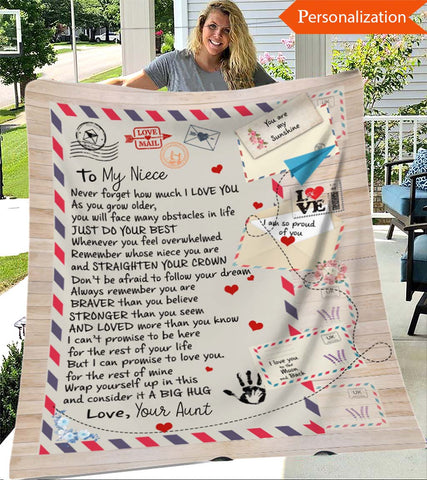 Personalization
You are my
Sunshine
LOVE
MAIL
To My Niece
Never forget how much I LOVE YOU
As you grow older,
you will face many obstacles in life
JUST DO YOUR BEST
Whenever you feel overwhelmed
Remember whose niece you are
and STRAIGHTEN YOUR CROWN
Don't be afraid to follow your dream
Always remember you are
BRAVER than you believe
STRONGER than you seem
AND LOVED more than you know
I can't promise to be here
for the rest of your life
But I can promise to love you.
for the rest of mine
Wrap yourself up in this
and consider it A BIG HUG
Love, Your Aunt
LOVE
I am so proud
of you
I love you
to the
Moon
and Back